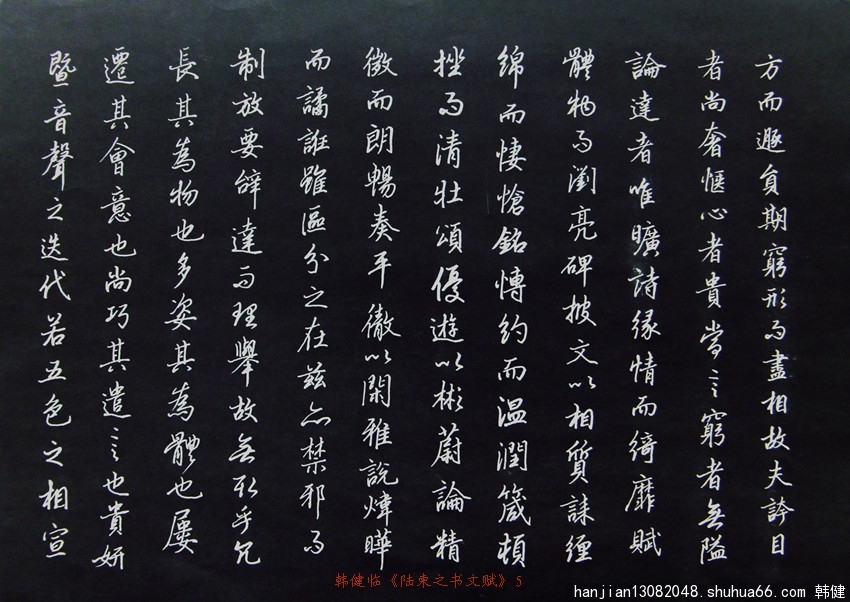 方而遯負期窮形而盡相故夫誇目
者尚奢惬心者貴當言窮者無隘
論達者唯曠詩緣情而綺靡賦
體物而瀏亮碑披文以相質誄纏
綿而悽愴銘博約而温潤箴頓
挫而清壮頌優遊以彬蔚論精
微而朗暢奏平徹以閑雅說煒曄
而譎誑雖區分之在兹亦禁邪而
制放要辭達而理舉故無取乎冗
長其為物也多姿其為體也屢
遷其會意也尚巧其遣言也貴妍
暨音聲之迭代若五色之相宣
韩健临《陆柬之书文赋》5
hanjian13082048.shuhua66.com 韩健